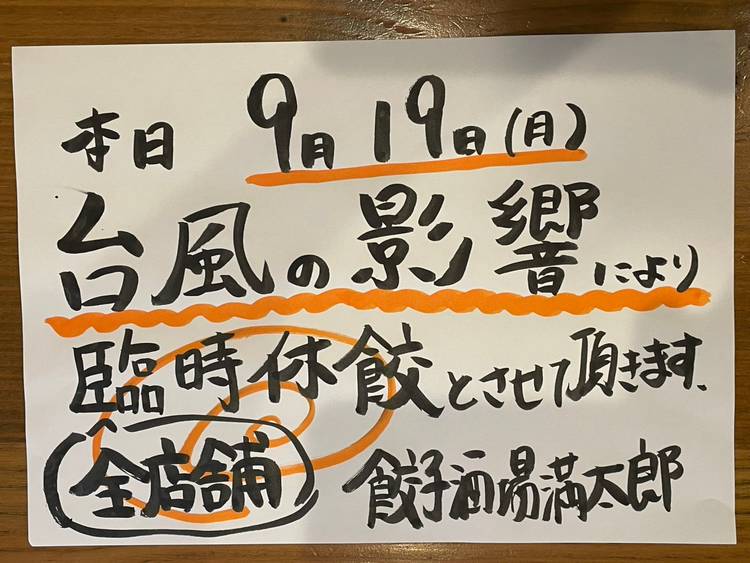 本日 9月19日(月)
台風の影響により
臨時休餃とさせて頂きます、
全店舗 餃子酒場満太郎